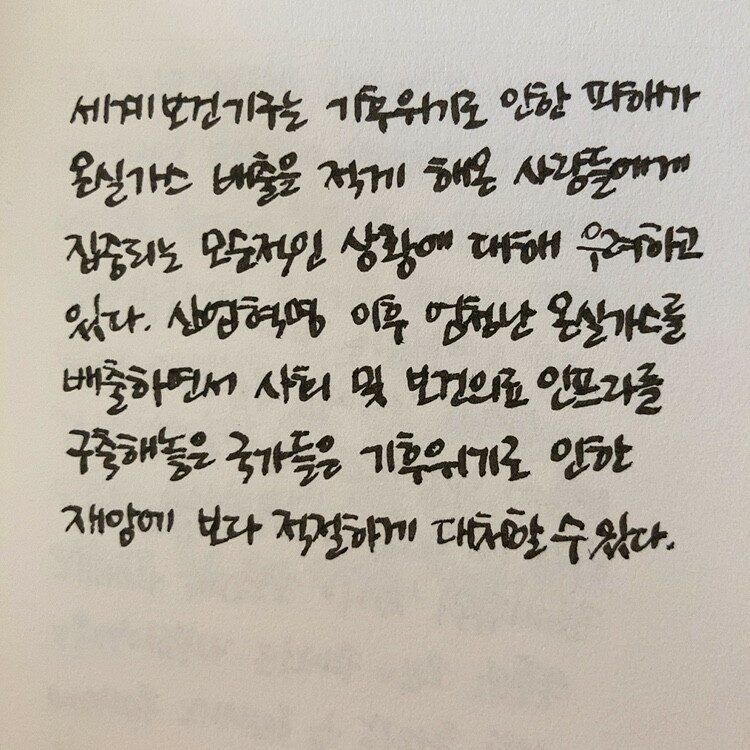 세계보건기구는 기후위기로 인한 피해가
온실가스 배출을 적게 해온 사람들에게
집중되는 모순적인 상황에 대해 우려하고
있다. 산업혁명 이후 엄청난 온실가스를
배출하면서 사회 및 보건의료 인프라를
구축해놓은 국가들은 기후위기로 인한
재앙에 보다 적절하게 대처할 수 있다.